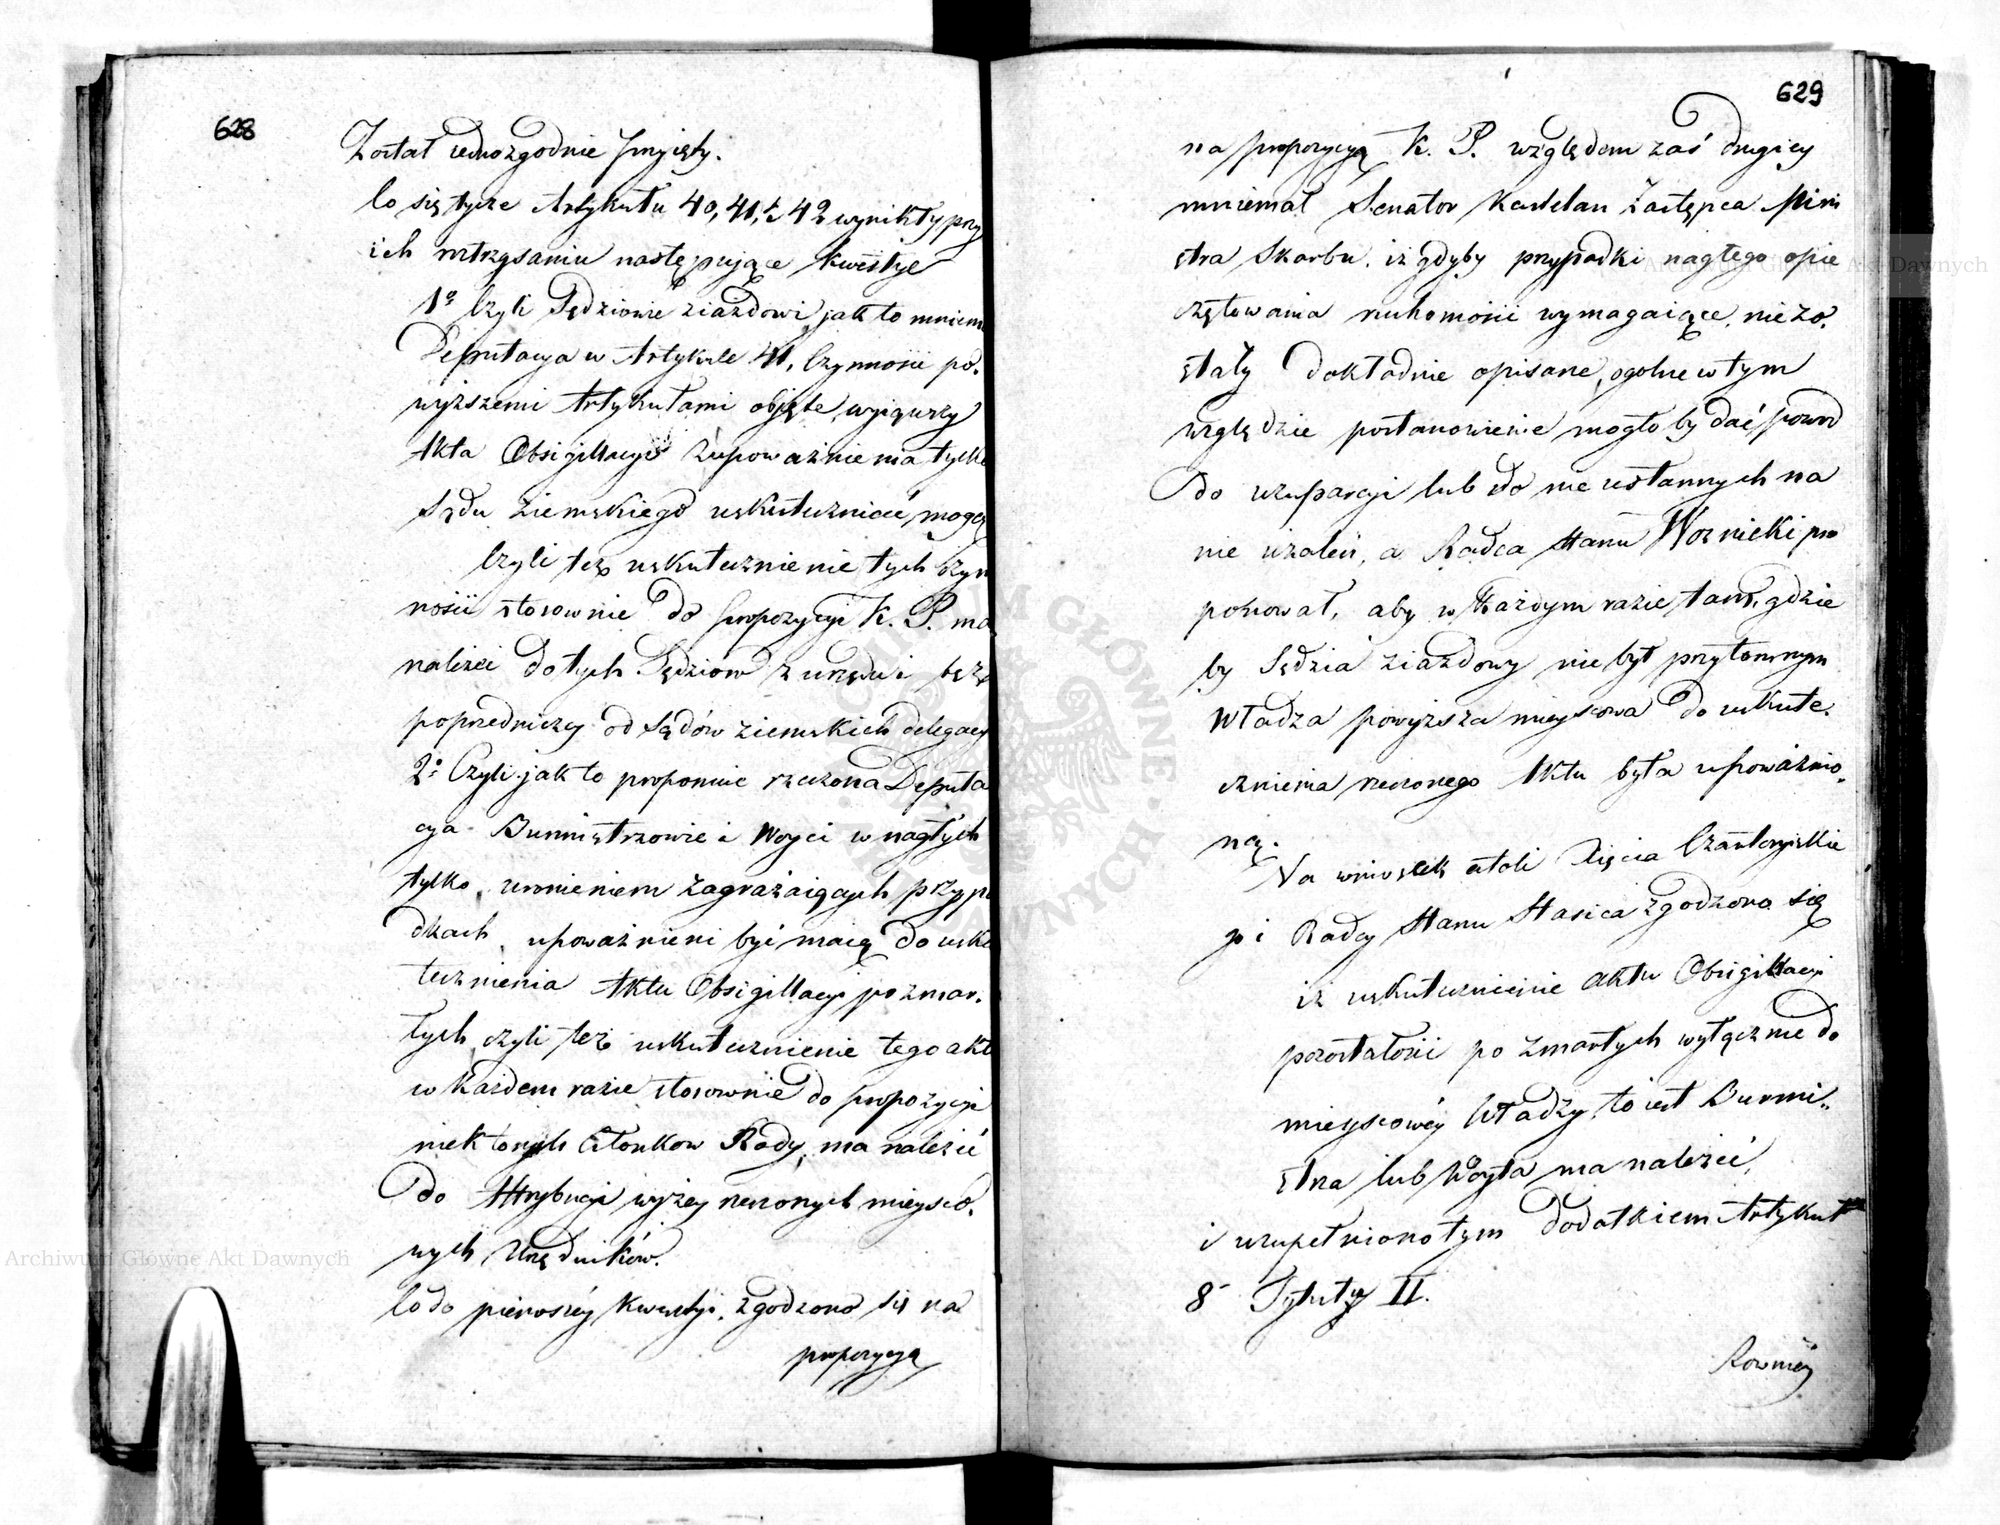 628
Został iednozgodnie przyięty.
Co się tycze Artykułu 40, 41, i 42 wynikły przy
ich roztrzęsaniu następujące kwestye
1º Czyli Sędziowie ziazdowi jak to mniem
Deputacya w Artykule 41, Czynności po.
wyższemi Artykułami objęte, wyiąwszy
Akta Obsigillacyi z upoważnienia tylko
Sądu Ziemskiego uskuteczniać mogą
Czyli też uskutecznienie tych czyn
ności stosownie do propozycyi K. P. ma
należeć do tych Sędziow z urzędu i bez
poprzedniczey od Sądów ziemskich delegacy
2º Czyli jak to proponuie rzeczona Deputa
cya Burmistrzowie i Woyci w nagłych
tylko, uronieniem zagrażaiących przypa
dkach, upoważnieni być maią do usku
tecznienia Aktu Obsigillacyi po zmar.
łych, czyli też uskutecznienie tego aktu
w każdem razie stosownie do propozycyi
niektorych Członkow Rady, ma należeć
do Attrybucyi wyżey rzeczonych mieysco.
wych Urzędników.
Co do pierwszéy kwestyi, zgodzono się na
propozycyą
629
na propozycyą K. P. względem zaś drugiey
mniemał Senator Kasztelan Zastępca Mini
stra Skarbu, iż gdyby przypadki nagłego opie
czętowania ruchomości wymagaiące, nie zo.
stały dokładnie opisane, ogolne w tym
względzie postanowienie mogłoby dać powod
do uzurpacyi lub do nieustannych na
nie użaleń, a Radca Stanu Woznicki pro
ponował, aby w każdym razie tam, gdzie
by Sędzia ziazdowy nie był przytomnym
Władza powyższa mieyscowa do uskute.
cznienia rzeczonego Aktu była upoważnio.
ną.
Na wniosek atoli Xięcia Czartoryskie
go i Radcy Stanu Stasica zgodzono się
iż uskutecznienie aktu Obsigillacyi
pozostałości po zmarłych wyłącznie do
mieyscowéy Władzy, to iest Burmi..
stra lub Woyta ma należeć,
i uzupełniono tym dodatkiem Artykuł
8 Tytułu II.
Rownież
Archiwum Główne Akt Dawnych
Archiwum Główne Akt Dawnych
ARCHIWUM GŁÓWNE AKT DAWNYCH